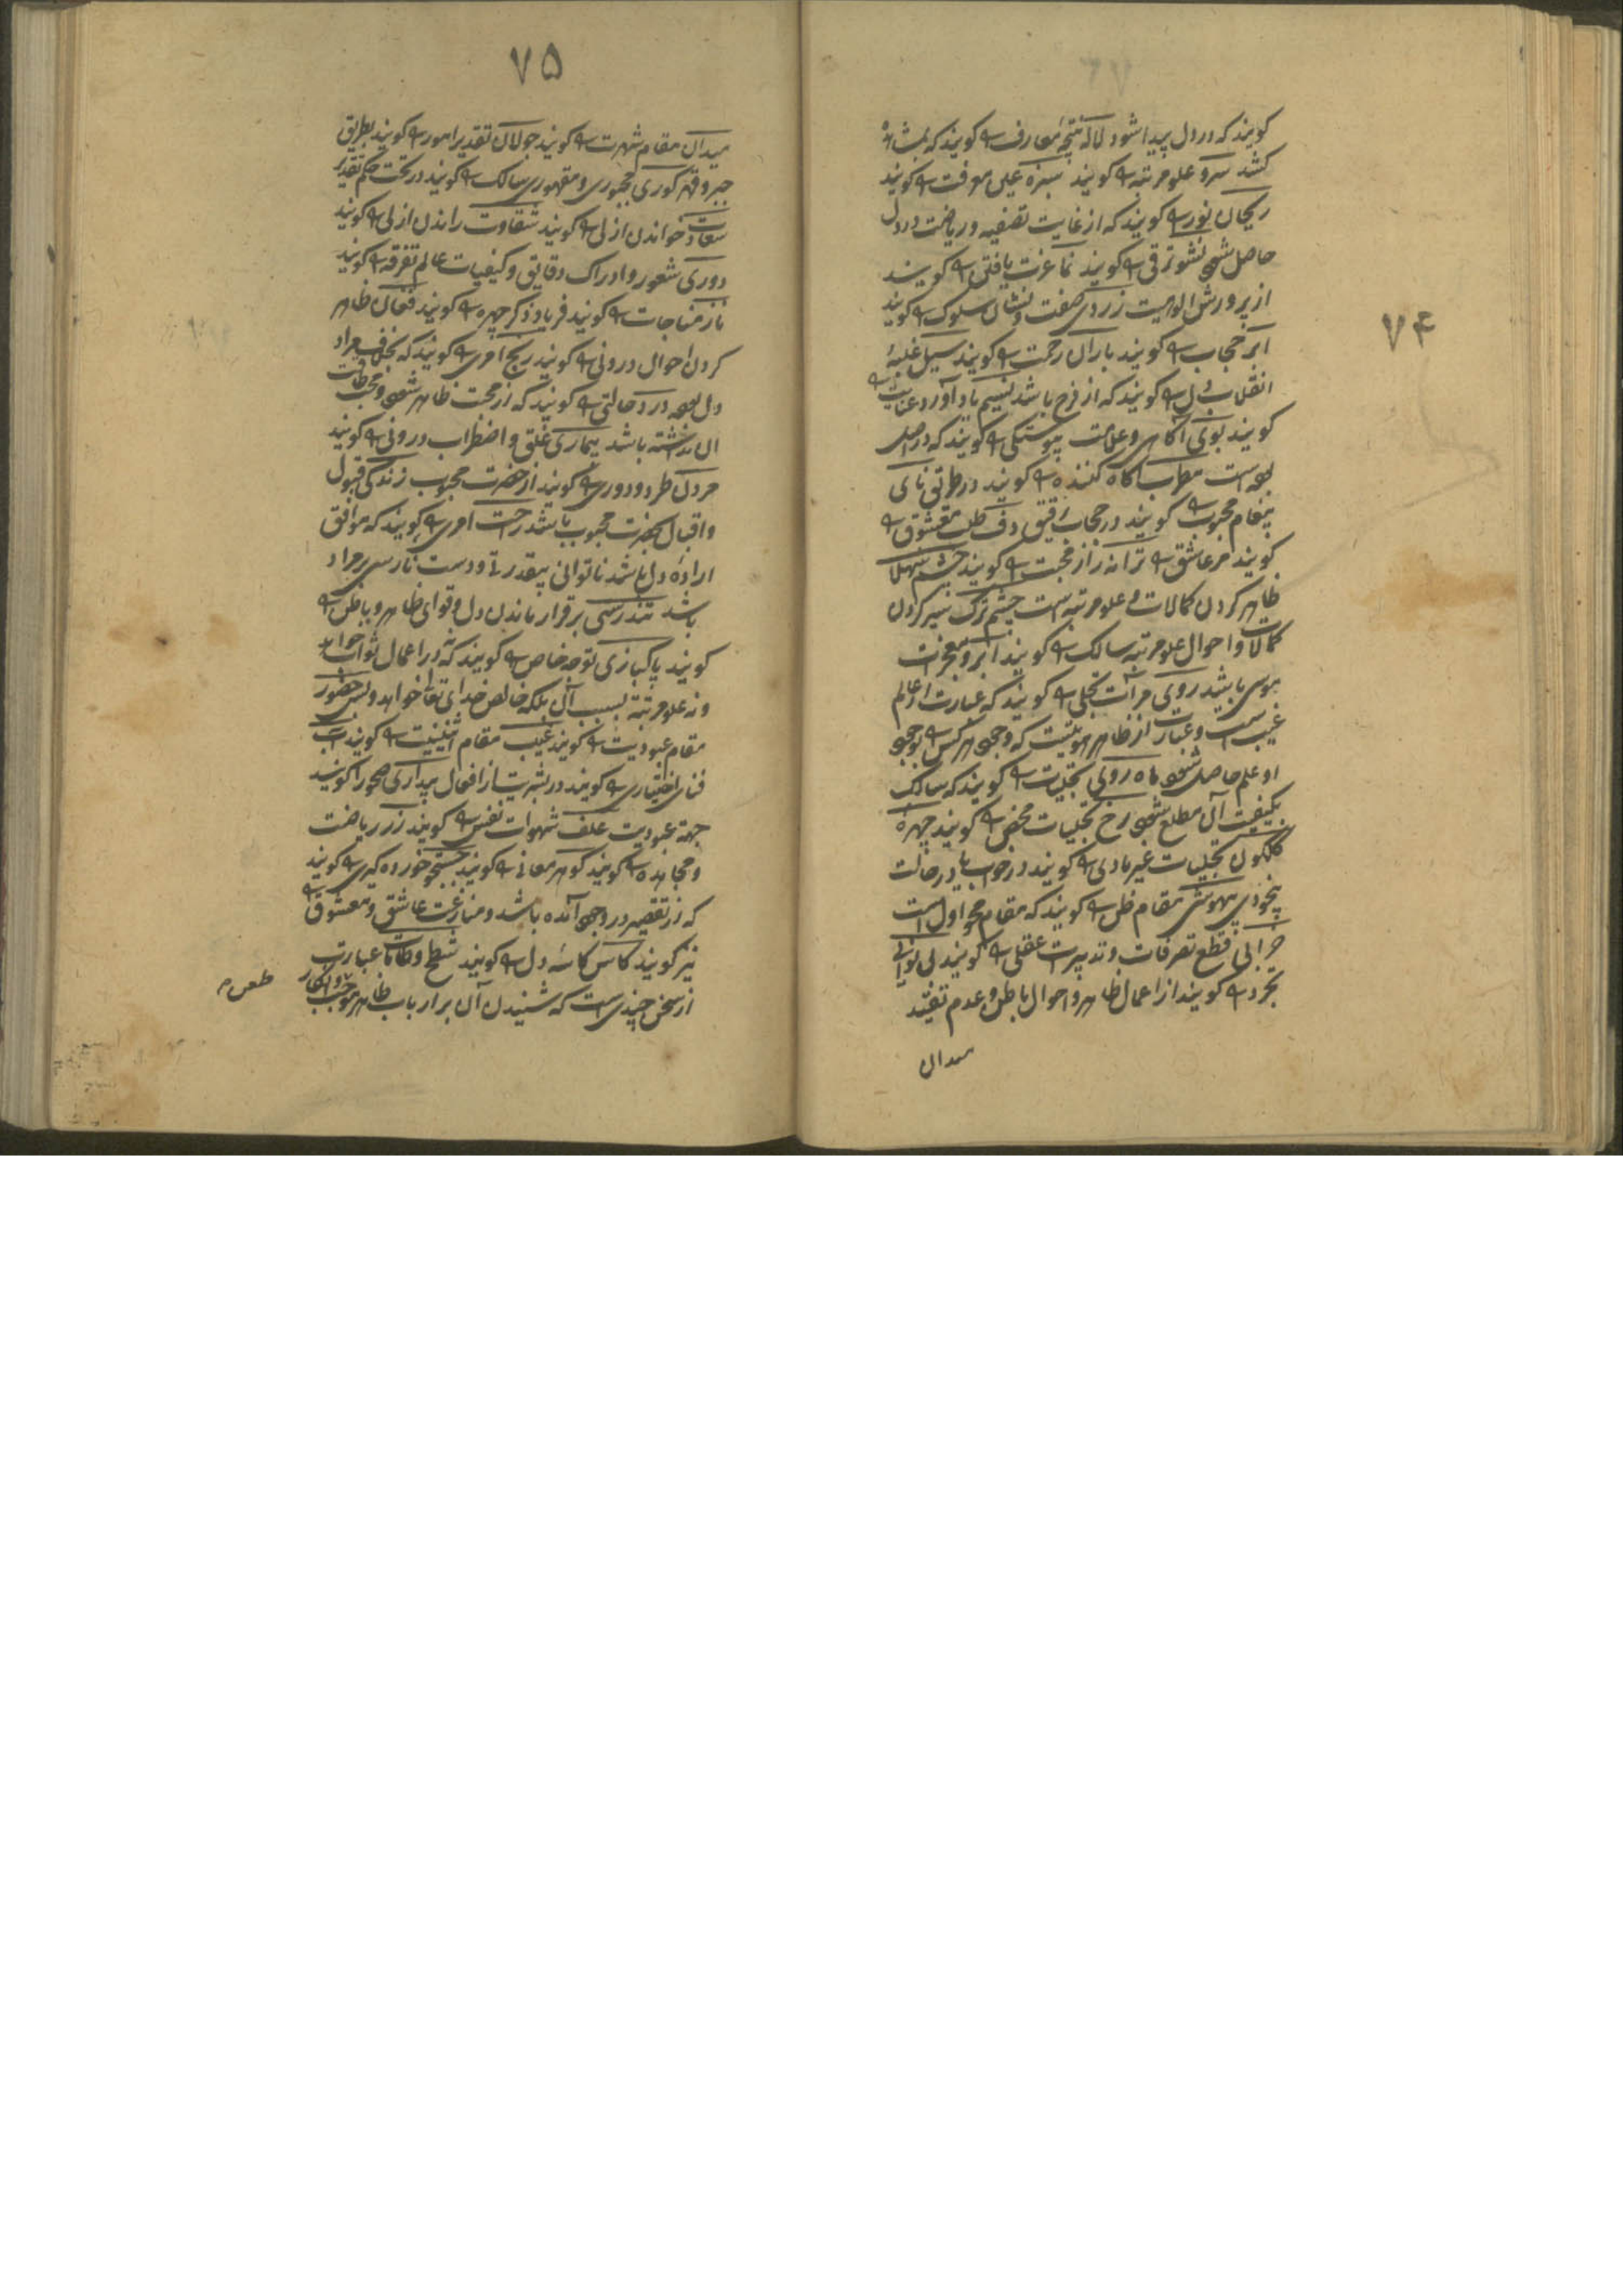 ۷۴
کویند که در دل پیدا شود لاله نتیجهٔ معارف را کویند که بمشاهده
کشد سرو علو مرتبه را کویند سبزه عین معرفت را کویند
ریحان نور را کویند که از غایت تصفیه و ریاضت در دل
حاصل شود نشو ترقی را کویند نما عزت یافتن را کویند
از پرورش الوهیت زردی صفت و نشان سلوک را کویند
ابر حجاب را کویند باران رحمت را کویند سیل غلبهٔ
انقلاب دل را کویند که از فرح باشد نسیم یاد آورد عنایت را
کویند بوی آکاهی و علامت پیوستکی را کویند که در اصل
بوده است مطرب آکاه کننده را کویند در طریق نای
پیغام محبوب را کویند در حجاب رقیق دف طلب معشوق را
کویند مر عاشق را ترانه راز محبت را کویند چشم شهلا
ظاهر کردن کمالات و علو مرتبه است چشم ترک ستر کردن
کمالات و احوال علو مرتبه سالک را کویند
روی مرآت تجلی را کویند که عبارت از عالم
غیب است و عبارت از ظاهر
او علم حاصل شود ماه روی تجلیات را کویند که سالک
بکیفیت آن مطلع شود رخ تجلیات محض را کویند چهرهٔ
کلکون تجلیات غیر مادی را کویند در خواب یا در حالت
بیخودی بیهوشی مقام طمس را کویند که مقام محو اول است
خرابی قطع تصرفات و تدبیرات عقلی را کویند بی نوایی
تجرد را کویند از اعمال ظاهر و احوال باطن و عدم تقید
میدان
۷۵
میدان مقام شهرت را کویند جولان تقدیر امور را کویند بطریق
جبر و قهر کوی مجبوری و مقهوری سالک را کویند در تحت حکم تقدیر
سعادت خواندن ازلی را کویند شقاوت راندن ازلی را کویند
دوری شعور و ادراک دقایق و کیفیات عالم تفرقه را کویند
ناز مناجات را کویند فریاد ذکر جهر را کویند فغان ظاهر
کردن احوال درونی را کویند رنج امری را کویند که بخلاف مراد
دل بود درد حالتی را کویند که از محبت ظاهر شود و محب طاقت
آن نداشته باشد بیماری قلق و اضطراب درونی را کویند
مردن طرد و دوری را کویند از حضرت محبوب زندکی قبول
و اقبال بحضرت محبوب باشد راحت امری را کویند که موافق
ارادهٔ دل باشد ناتوانی بیقدرتی و دست نارسی بر مراد
باشد تندرستی برقرار ماندن دل و قوای ظاهر و باطن را
کویند پاکبازی توجه خاص را کویند که نه در اعمال ثواب خواهد
و نه علو مرتبه بسبب آن بلکه خالص خدای تعالی خواهد و بس حضور
مقام عبودیت را کویند غیب مقام اثنینیت را کویند
فنای اختیاری را کویند در بشریت از افعال بیداری صحو را کویند
جهة عبودیت علف شهوات نفس را کویند زر ریاضت
و مجاهده را کویند کوهر معانی را کویند جستجو خورده کیری را کویند
که از تقصیر در وجود آمده باشد و منازعت عاشق و معشوق را
نیز کویند کاس کاسه دل را کویند شطح و طامات عبارت
از سخن چیزی است که شنیدن آن بر ارباب ظاهر موجب انکار
طعن